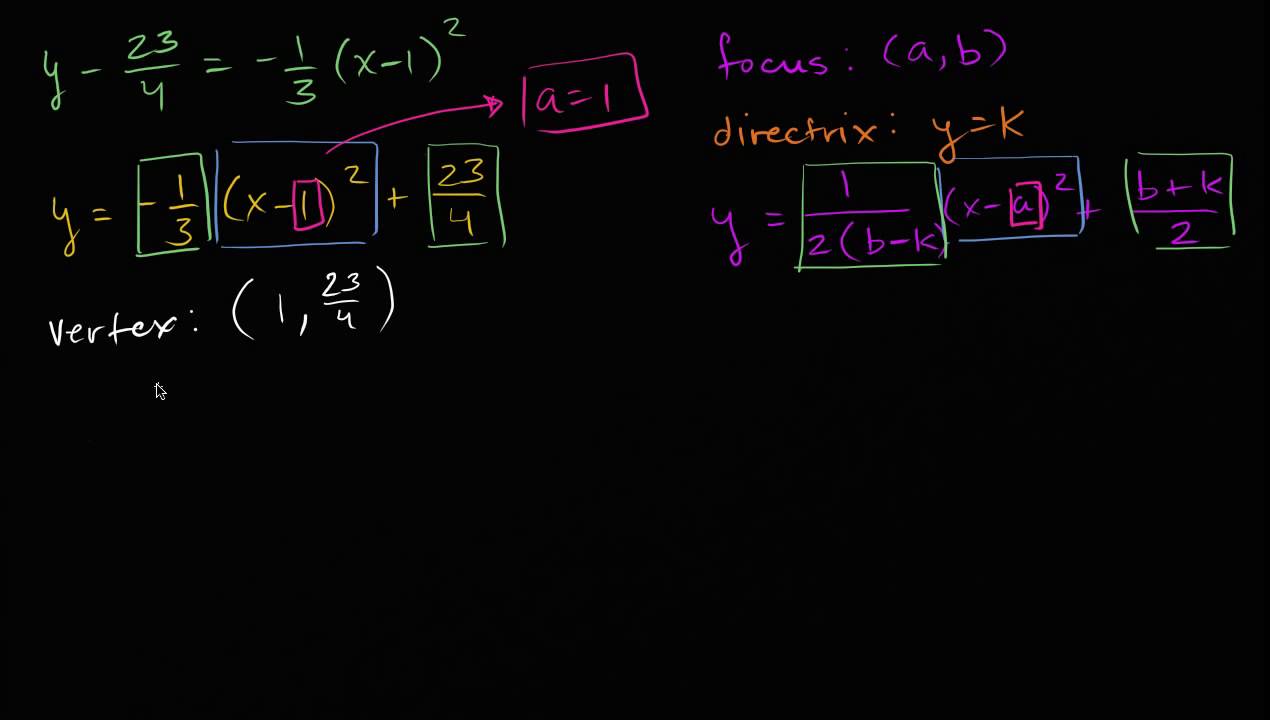 y - 23/4 = -1/3 (x-1)^2
a=1
y = -1/3 (x-1)^2 + 23/4
vertex: (1, 23/4)
focus: (a,b)
directrix: y=k
y = 1/2(b-k) (x-a)^2 + b+k/2